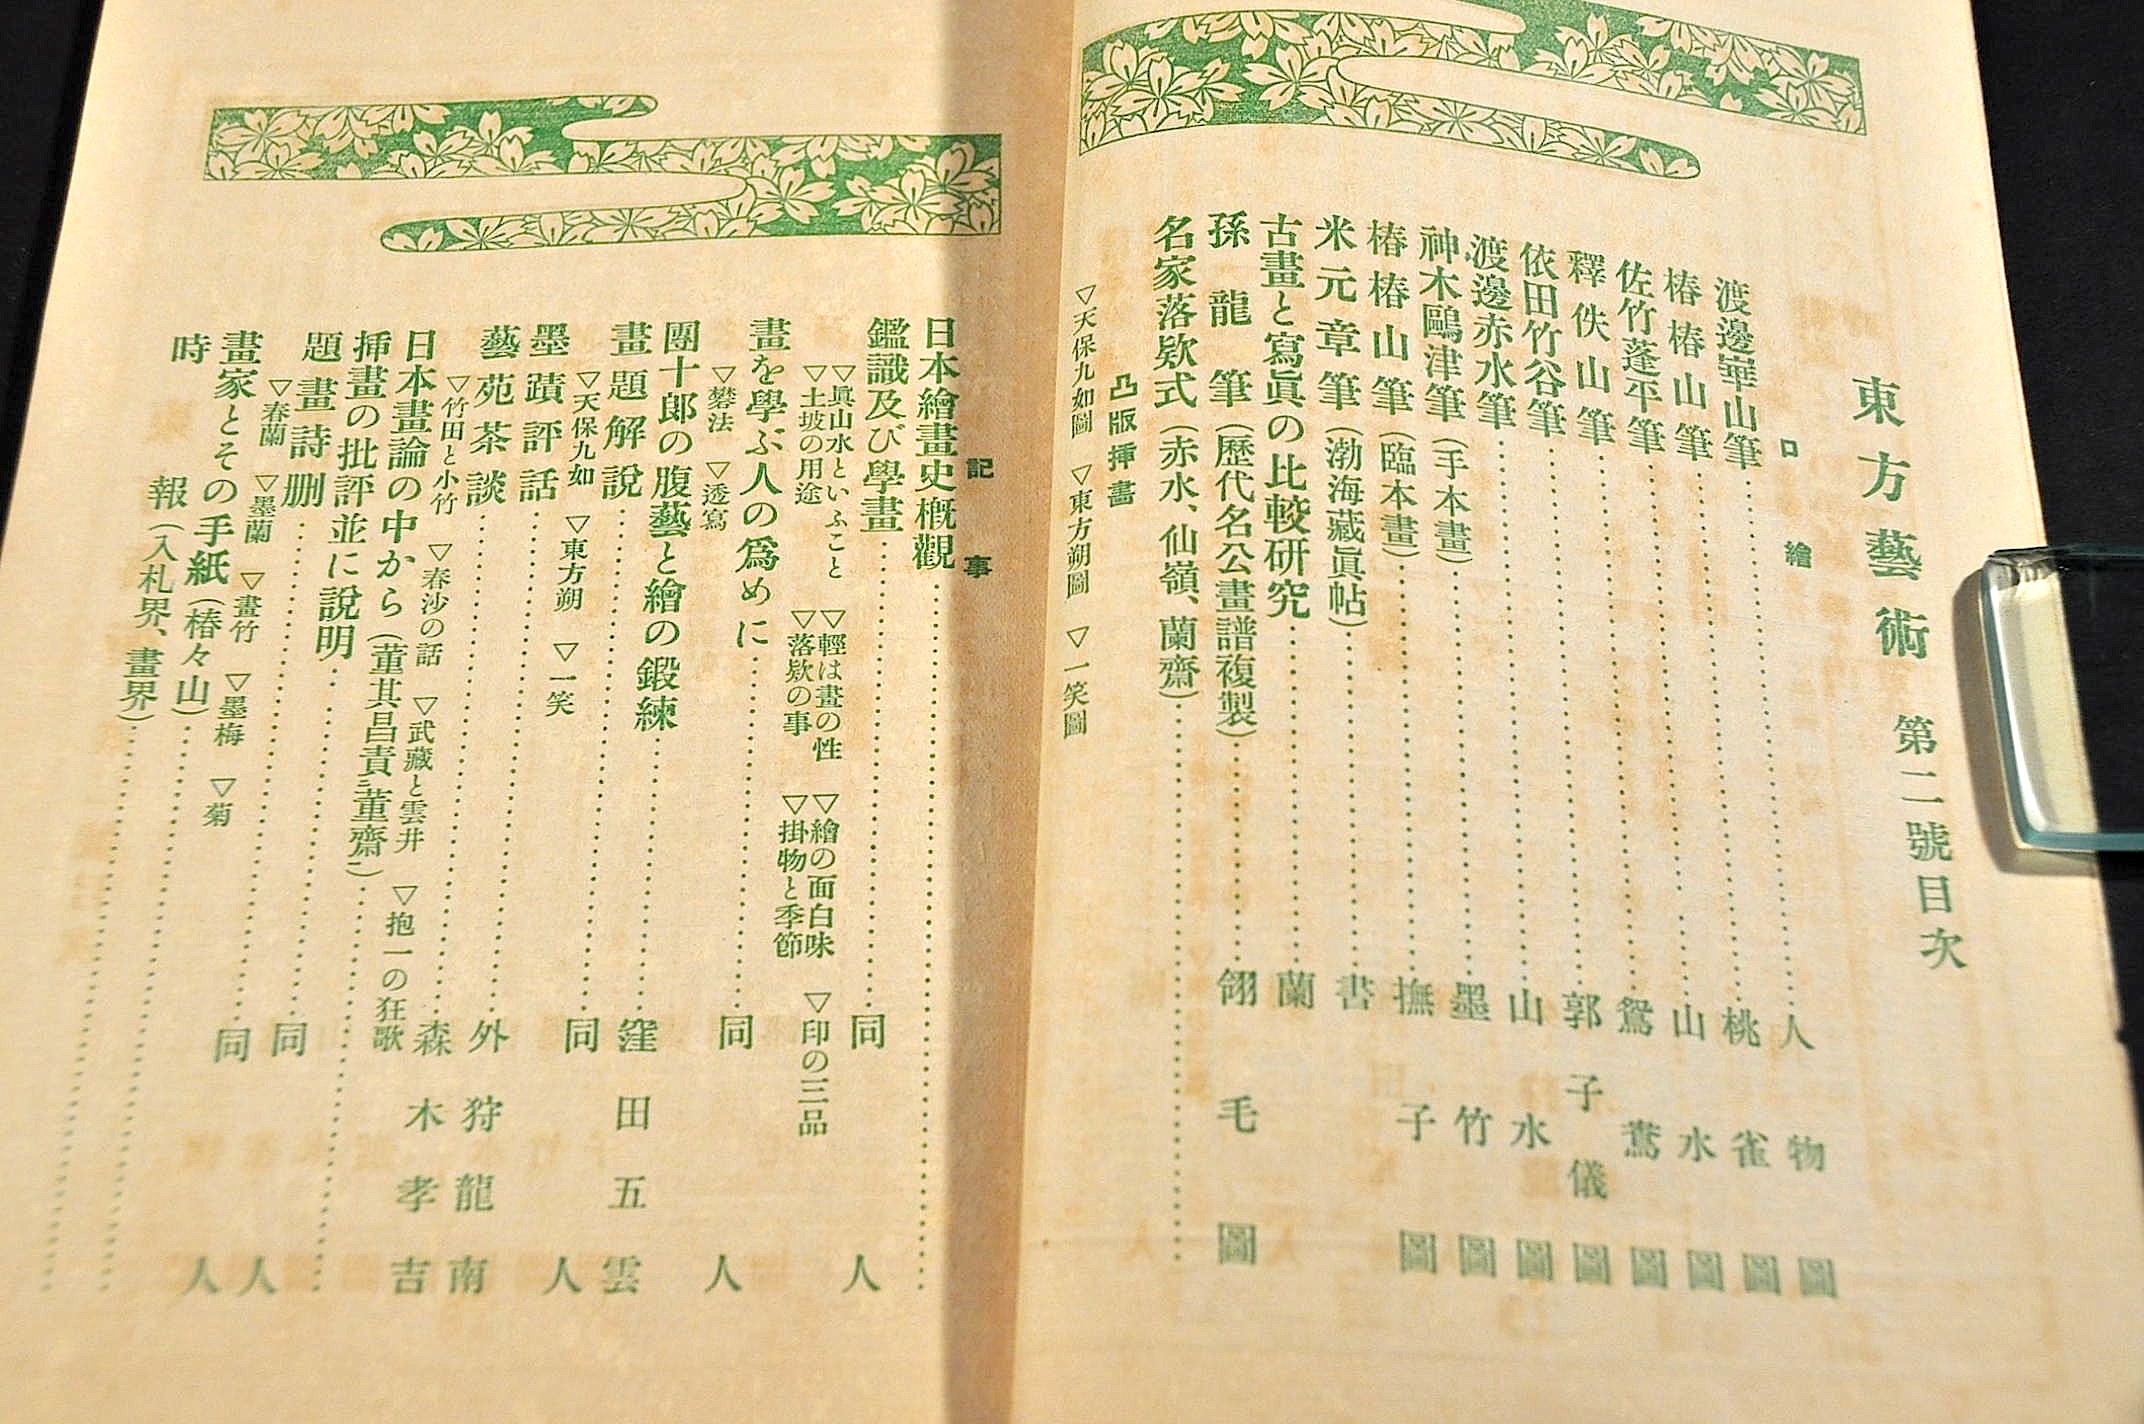 東方藝術 第二號目次
口繪
渡邊崋山筆……人物圖
椿椿山筆……桃雀圖
佐竹蓬平筆……山水圖
釋佚山筆……鴛鴦圖
依田竹谷筆……郭子儀圖
渡邊赤水筆……山水圖
神木鷗津筆(手本畫)……墨竹圖
椿椿山筆(臨本畫)……撫子圖
米元章筆(渤海藏眞帖)……書
古畫と寫眞の比較研究……蘭
孫龍筆(歷代名公畫譜複製)……翎毛圖
名家落欵式(赤水、仙嶺、蘭齋)……
凸版挿畫
▽天保九如圖 ▽東方朔圖 ▽一笑圖
記事
日本繪畫史槪觀……
鑑識及び學畫……同人
▽眞山水といふこと ▽輕は畫の性 ▽繪の面白味 ▽印の三品
▽土坡の用途 ▽落欵の事 ▽掛物と季節
畫を學ぶ人の爲めに……同人
▽礬法 ▽透寫
團十郎の腹藝と繪の鍛練……窪田五雲
畫題解說……同人
▽天保九如 ▽東方朔 ▽一笑
墨蹟評話……外狩龍南
藝苑茶談……森木孝吉
▽竹田と小竹 ▽春沙の話 ▽武藏と雲井 ▽抱一の狂歌
日本畫論の中から(董其昌責董齋)……
挿畫の批評並に說明……同人
題畫詩刪……同人
▽春蘭 ▽墨蘭 ▽畫竹 ▽墨梅 ▽菊
畫家とその手紙(椿々山)……
時報(入札界、畫界)……